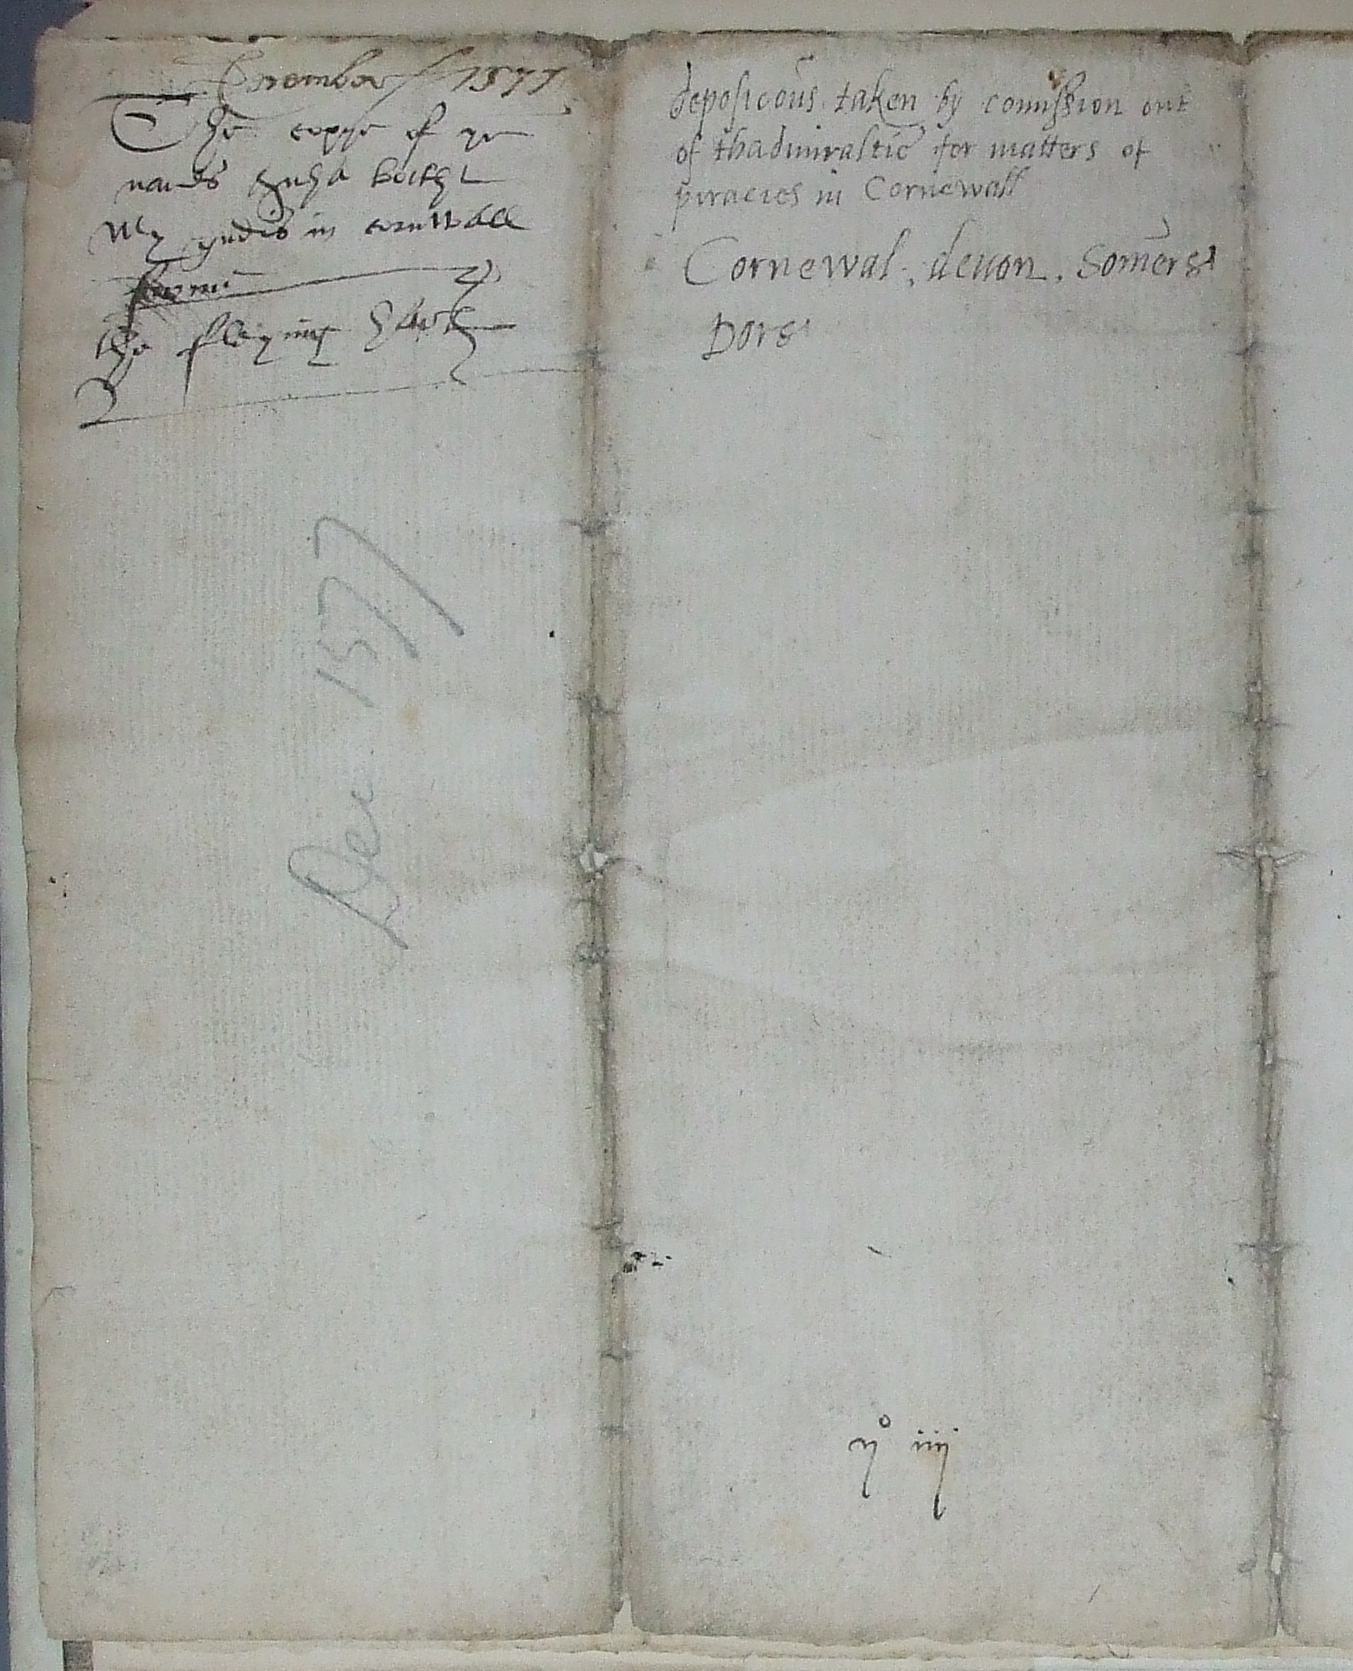 December / 1577
The copye of ye
names which bought
in cornwall
from
the flying
Dec 1577
deposicõns taken by comission out
of thadmiraltie for matters of
piracies in Cornewall
Cornewal. deuon. Somerst
Dorst
nº iiij